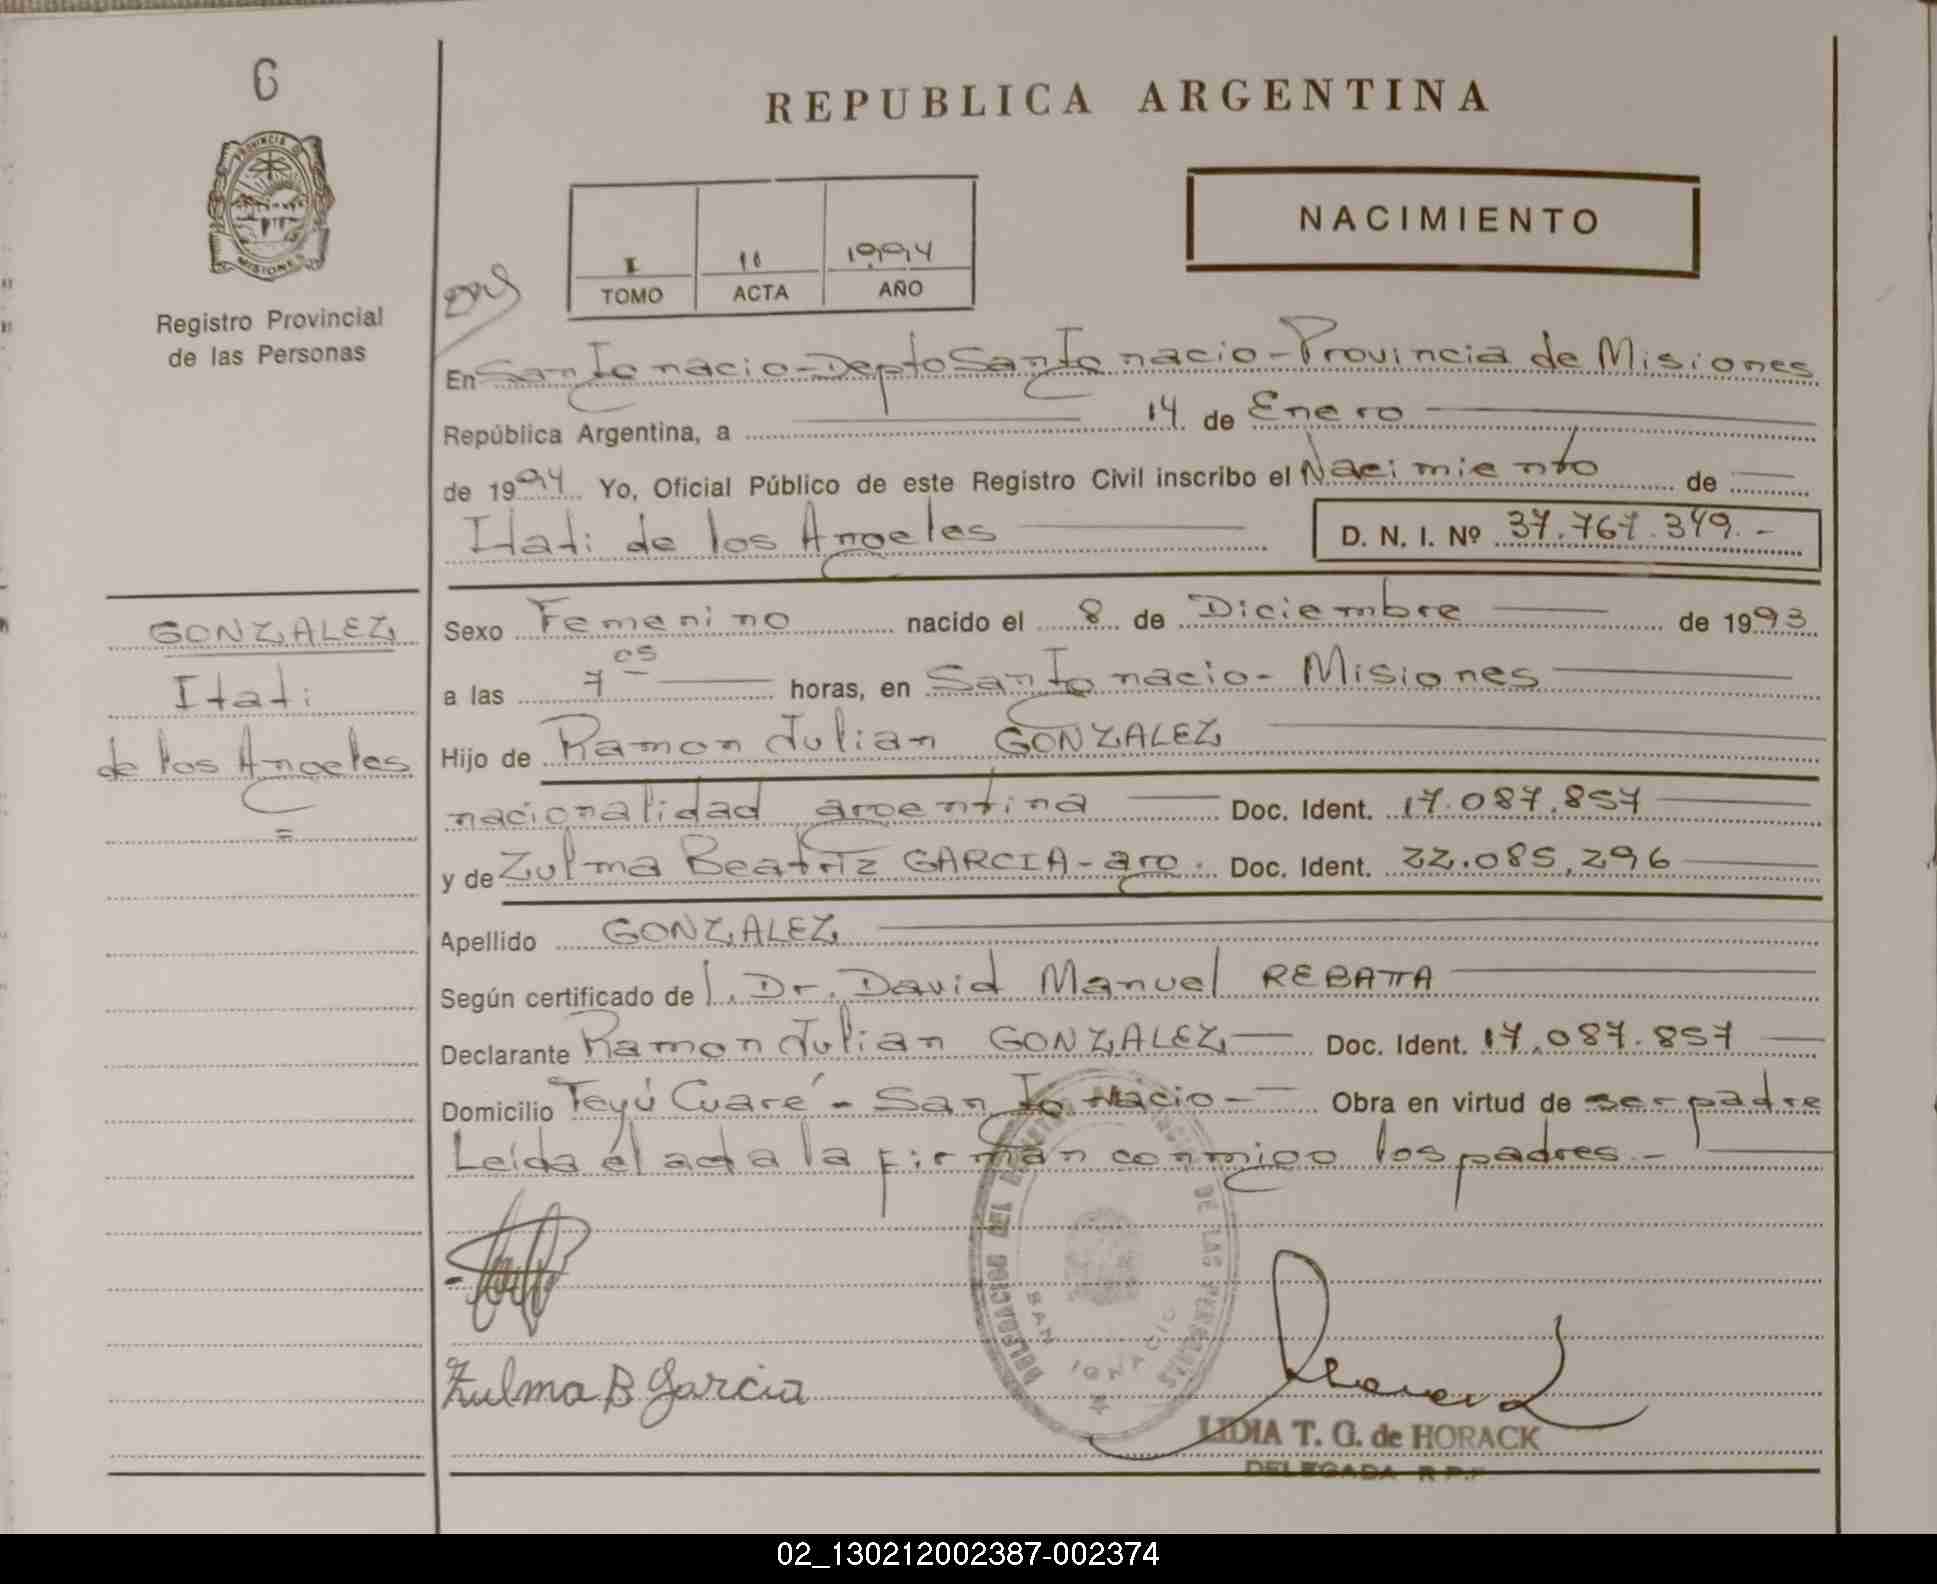 6
REPUBLICA ARGENTINA
PROVINCIA DE
MISIONES
NACIMIENTO
I 11 1994
TOMO ACTA AÑO
Registro Provincial
de las Personas
En San Ignacio - Depto San Ignacio - Provincia de Misiones
República Argentina, a 14 de Enero
de 1994 Yo, Oficial Público de este Registro Civil inscribo el Nacimiento de
Itati de los Angeles D. N. I. Nº 37.767.349.-
GONZALEZ
Itati
de los Angeles
=
Sexo Femenino nacido el 8 de Diciembre de 1993
a las 7 05 horas, en San Ignacio - Misiones
Hijo de Ramon Julian GONZALEZ
nacionalidad argentina Doc. Ident. 17.087.857
y de Zulma Beatriz GARCIA - arg. Doc. Ident. 22.085.296
Apellido GONZALEZ
Según certificado de l. Dr. David Manuel REBATTA
Declarante Ramon Julian GONZALEZ Doc. Ident. 17.087.857
Domicilio Teyú Cuaré - San Ignacio - Obra en virtud de ser padre
Leída el acta la firman conmigo los padres.-
DELEGACION DEL REGISTRO PROVINCIAL DE LAS PERSONAS
SAN IGNACIO
Zulma B Garcia
LIDIA T. G. de HORACK
DELEGADA R.P.P
02_130212002387-002374